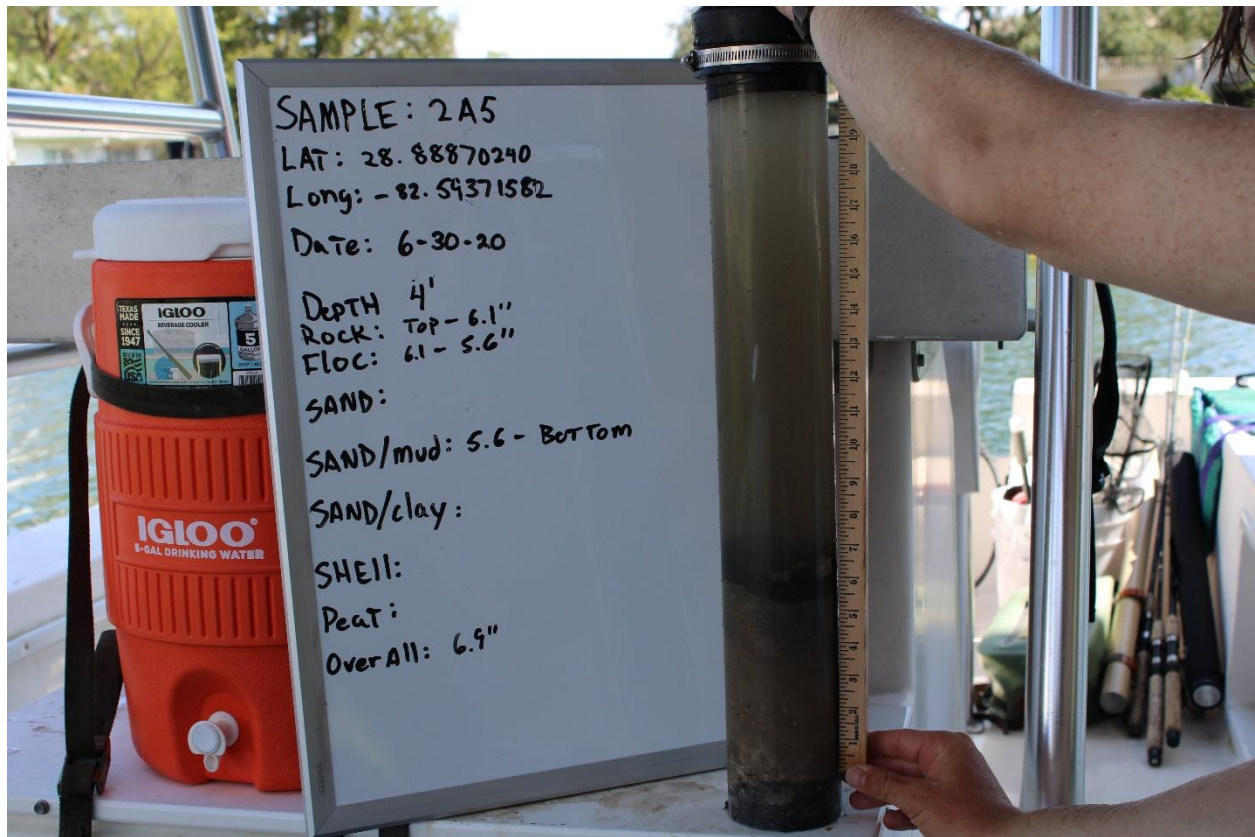 SAMPLE: 2A5
LAT: 28.88870240
Long: -82.59371582
Date: 6-30-20
DEPTH 4'
Rock: Top - 6.1"
Floc: 6.1 - 5.6"
SAND:
SAND/mud: 5.6 - BOTTOM
SAND/clay:
SHEll:
Peat:
OverAll: 6.9"
TEXAS
MADE
SINCE
1947
IGLOO
BEVERAGE COOLER
5
GALLON
IGLOO®
5-GAL DRINKING WATER